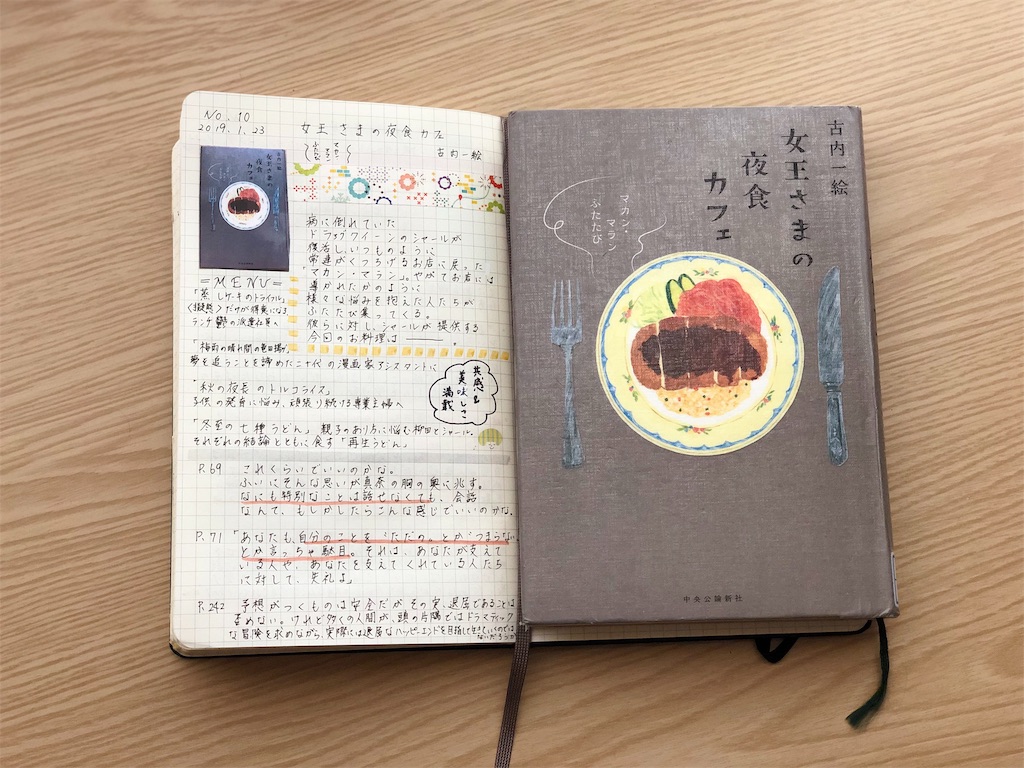 No. 10
2019. 1. 23
女王さまの夜食カフェ
マカン・マラン ふたたび
古内一絵
病に倒れていた
ドラァグクイーンのシャールが
復活しいつものように
常連がくつろげるお店に戻った
マカン・マラン。やがてお店には
導かれたかのように
様々な悩みを抱えた人たちが
ふたたび集ってくる。
彼らに対しシャールが提供する
今回のお料理は―――。
=MENU=
「蒸しケーキのトライフル」
〈擬態〉だけが得意になる、
ランチ鬱の派遣社員へ
「梅雨の晴れ間の竜田揚」
夢を追うことを諦めた二十代の漫画家アシスタントに
「秋の夜長のトルコライス」
子供の発育に悩み、頑張り続ける専業主婦へ
「冬至の七種うどん」 親子のあり方に悩む柳田とシャール。
それぞれの結論とともに食す「再生うどん」
共感&
美味しさ
満載
P.69 これくらいでいいのかな。
ふいにそんな思いが真奈の胸の奥に兆す。
なにも特別なことは話せなくても、会話
なんて、もしかしたらこんな感じでいいのかな。
P.71 「あなたも、自分のことを「ただの」とか「つまらない」
とか言っちゃ駄目。それは、あなたが支えて
いる人や、あなたを支えてくれている人たち
に対して、失礼よ」
P.242 予想がつくものは安全だがその実、退屈であることは
否めない。けれど多くの人間が、頭の片隅ではドラマティック
な冒険を求めながら、実際には退屈なハッピーエンドを目指して生きていくのでは
ないだろうか
古内一絵
女王さまの
夜食
カフェ
マカン・
マラン
ふたたび
中央公論新社